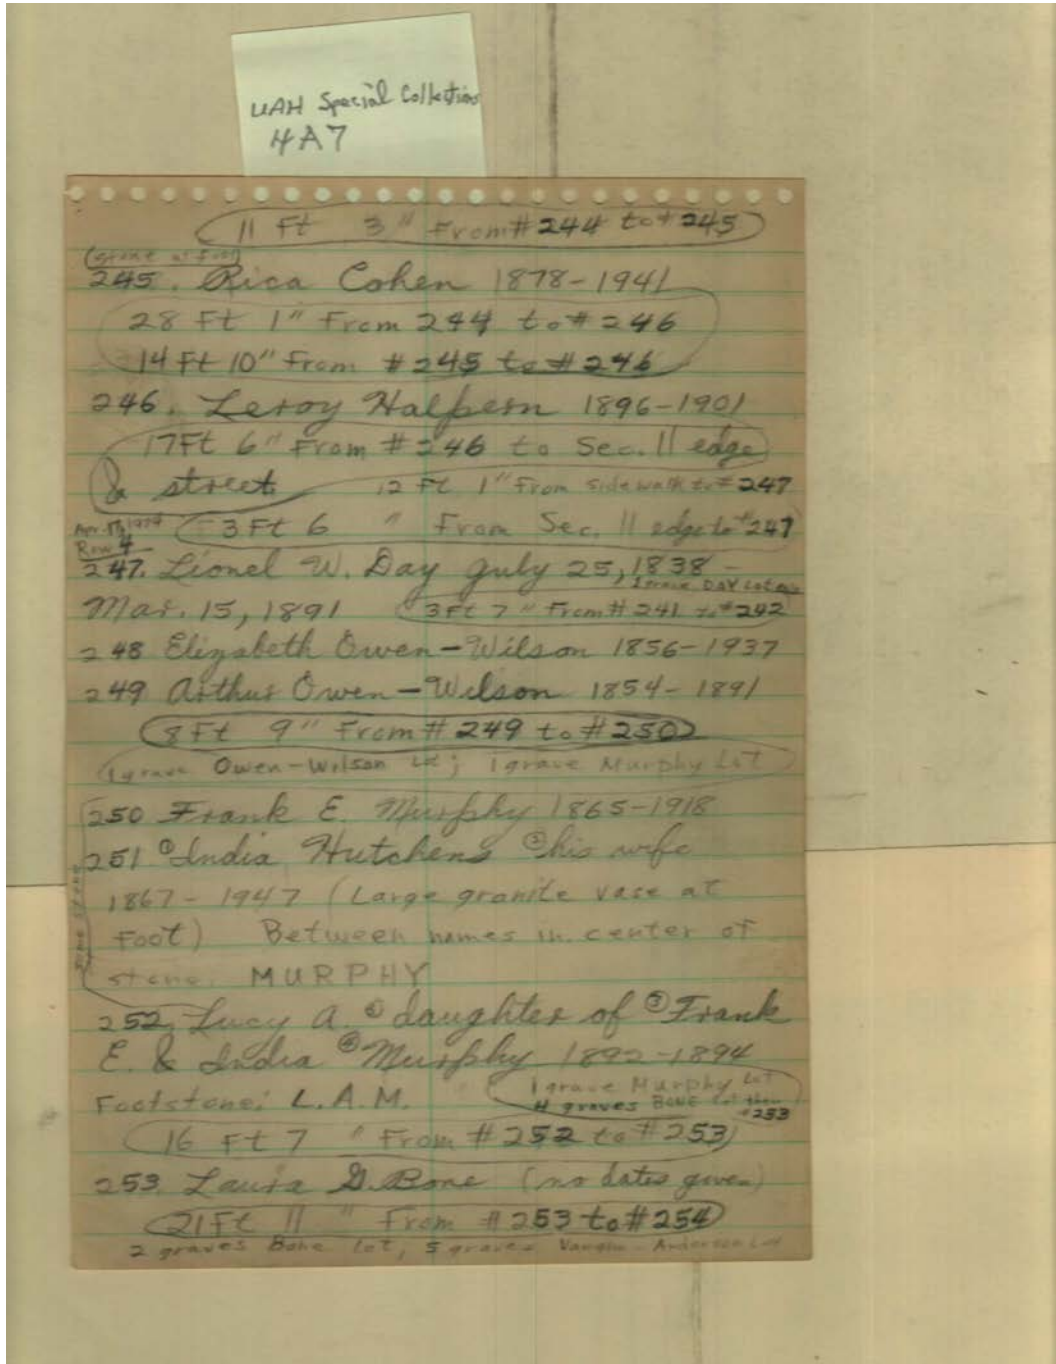 UAH Special Collections
4A7
11 Ft 3" From #244 to #245
(stone at foot)
245. Rica Cohen 1878-1941
28 Ft 1" From 244 to #246
14 Ft 10" From #245 to #246
246. Leroy Halpern 1896-1901
17 Ft 6" From #246 to Sec. 11 edge
& street 12 Ft 1" From sidewalk to #247
3 Ft 6 " From Sec. 11 edge to #247
Row 4
247. Lionel W. Day July 25, 1838 -
1 grave DAY Lot
Mar. 15, 1891 3 Ft 7" From #241 to #242
248 Elizabeth Owen-Wilson 1856-1937
249 Arthur Owen-Wilson 1854-1891
8 Ft 9" From #249 to #250
1 grave Owen-Wilson Lot; 1 grave Murphy Lot
250 Frank E. Murphy 1865-1918
251 ① India Hutchens ② his wife
1867-1947 (Large granite vase at
Foot) Between names in center of
stone: MURPHY
252. Lucy A. ① daughter of ③ Frank
E. & India ④ Murphy 1892-1894
Footstone: L.A.M.
1 grave Murphy Lot
4 graves BONE Lot then #253
16 Ft 7 " From #252 to #253
253. Laura G. Bone (no dates given)
21 Ft 11 " From #253 to #254
2 graves Bone Lot, 5 graves Vaughn-Anderson Lot